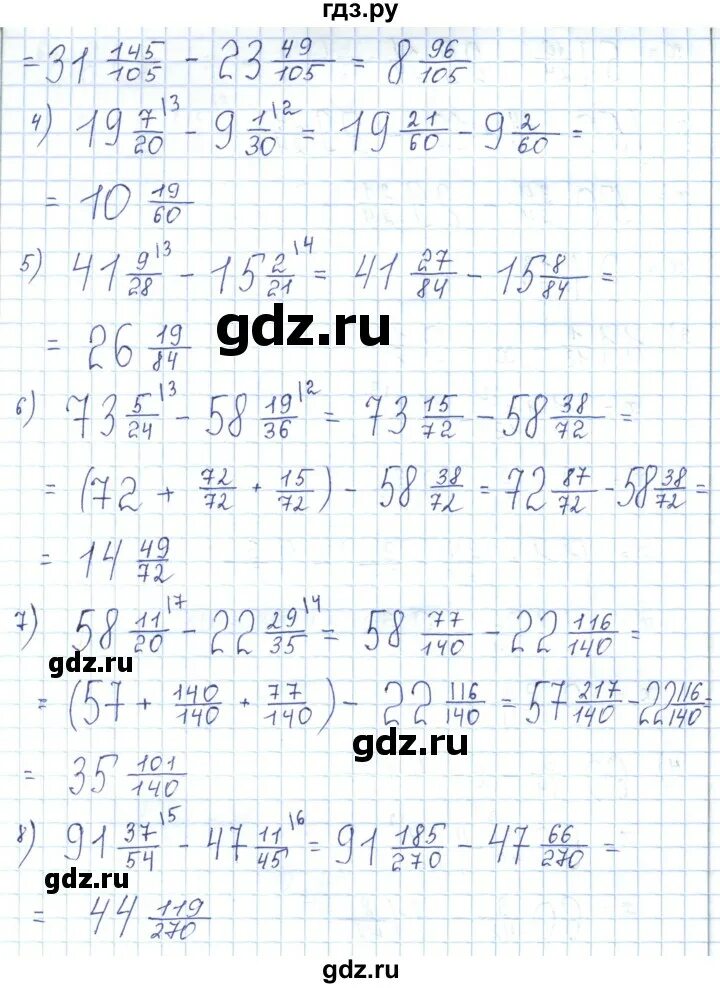 гдз.ру
= 31 145/105 - 23 49/105 = 8 96/105
4) 19 7/20 |3 - 9 1/30 |2 = 19 21/60 - 9 2/60 =
= 10 19/60
5) 41 9/28 |3 - 15 2/21 |4 = 41 27/84 - 15 8/84 =
= 26 19/84
gdz.ru
6) 73 5/24 |3 - 58 19/36 |2 = 73 15/72 - 58 38/72 =
= (72 + 72/72 + 15/72) - 58 38/72 = 72 87/72 - 58 38/72 =
= 14 49/72
7) 58 11/20 |7 - 22 29/35 |4 = 58 77/140 - 22 116/140 =
gdz.ru
= (57 + 140/140 + 77/140) - 22 116/140 = 57 217/140 - 22 116/140 =
gdz.ru
= 35 101/140
8) 91 37/54 |5 - 47 11/45 |6 = 91 185/270 - 47 66/270 =
gdz.ru
= 44 119/270
gdz.ru